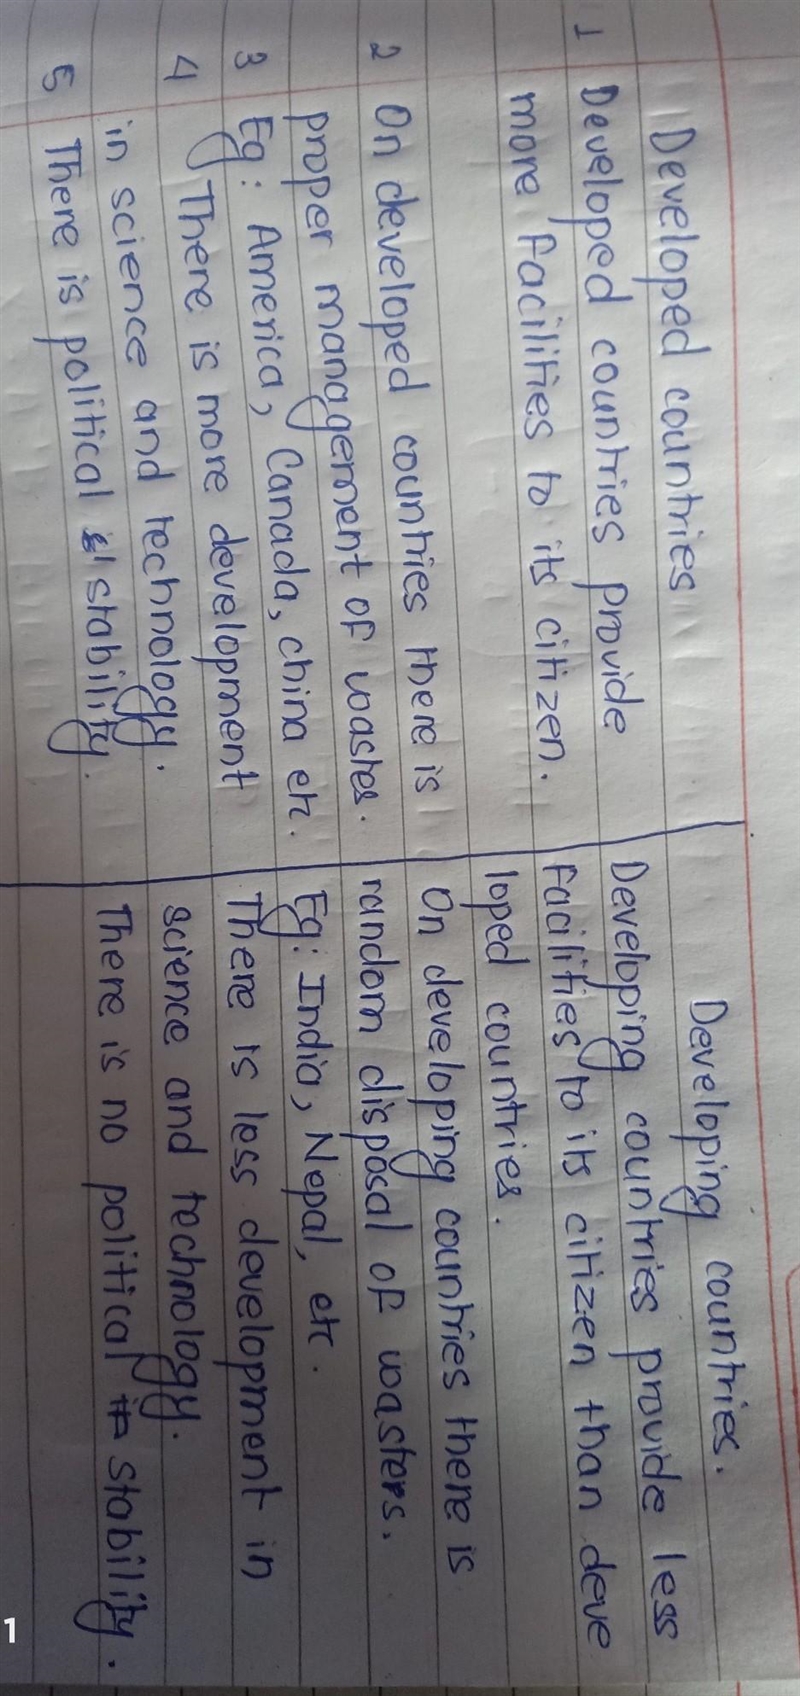 Developed countries
1 Developed countries provide
more facilities to its citizen.
2 On developed countries there is
proper management of wastes.
3 Eg: America, Canada, china etc.
4 There is more development
in science and technology.
5 There is political stability.
Developing countries.
Developing countries provide less
facilities to its citizen than deve
loped countries.
On developing countries there is
random disposal of wasters.
Eg: India, Nepal, etc.
There is less development in
science and technology.
There is no political stability.
1